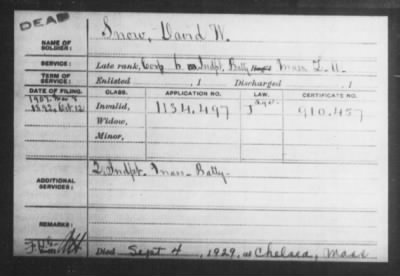 DEAD
NAME OF SOLDIER: Snow, David N.
SERVICE: Late rank, Corp Indpt. Batty Mass L. A.
TERM OF SERVICE: Enlisted , 1 Discharged , 1
DATE OF FILING. CLASS. APPLICATION NO. LAW. CERTIFICATE NO.
1907
1892, Oct 12 Invalid, 1134.497 910.457
Widow,
Minor,
ADDITIONAL SERVICES: 2. Indpt. Mass. Batty.
REMARKS:
Died Sept 4, 1929, at Chelsea, Mass